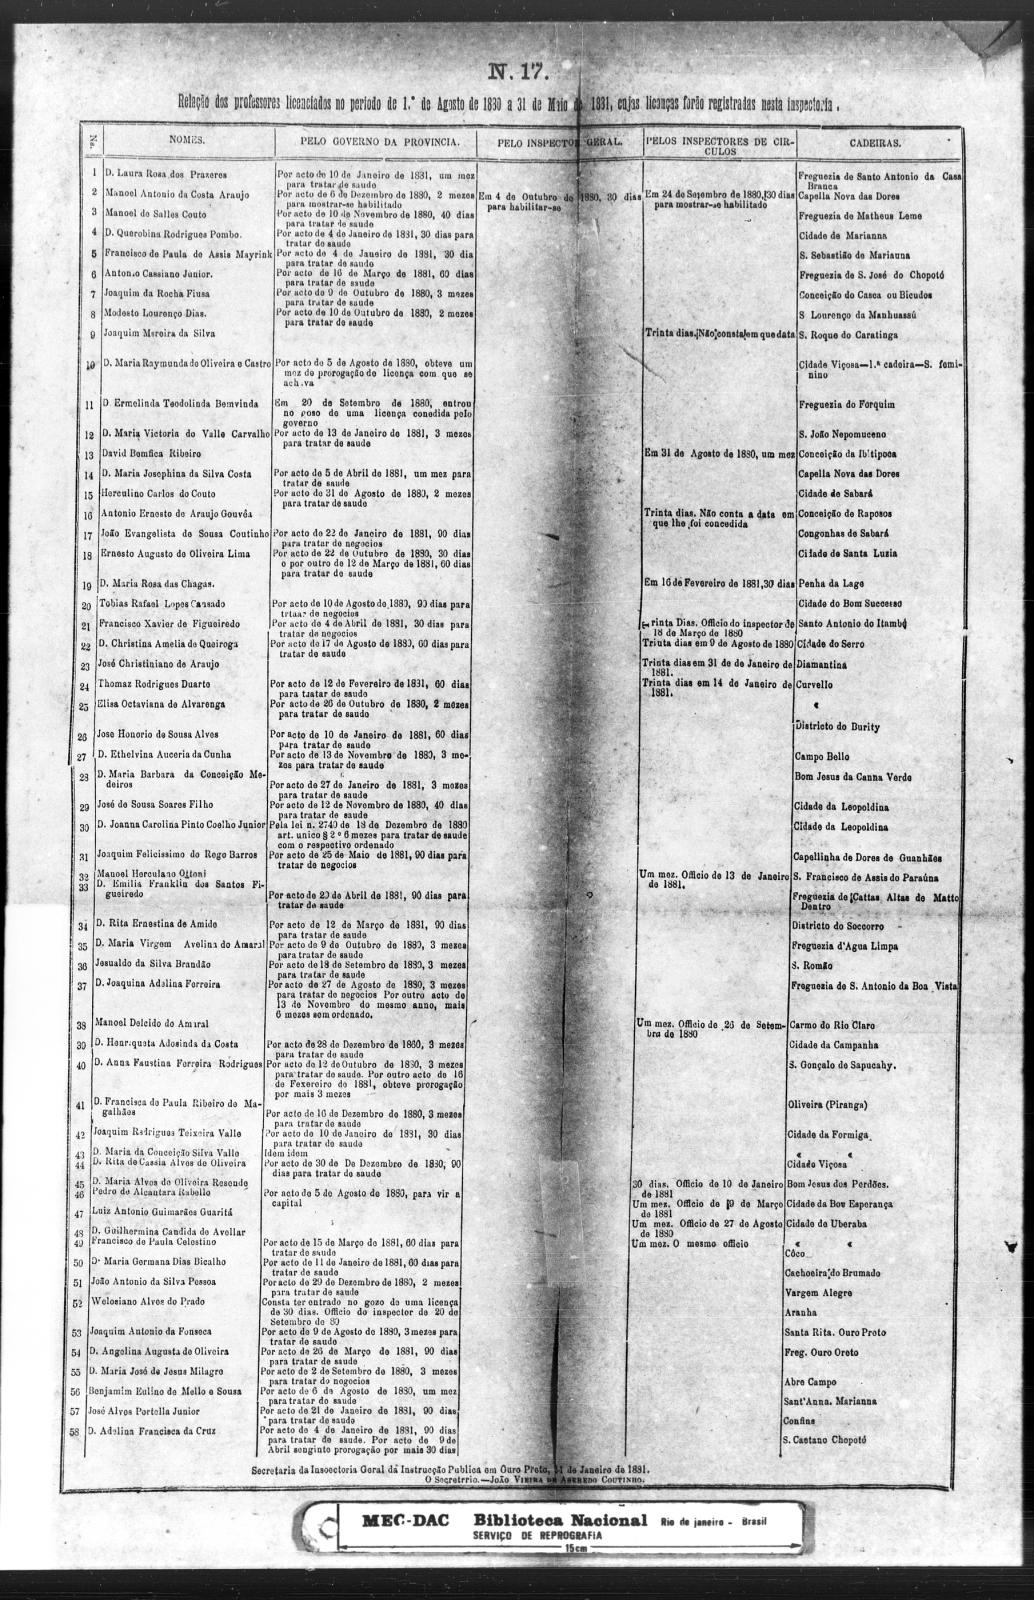 N. 17.
Relação dos professores licenciados no periodo de 1.º de Agosto de 1880 a 31 de Maio de 1881, cujas licenças forão registradas nesta inspectoria.
Ns. NOMES. PELO GOVERNO DA PROVINCIA. PELO INSPECTOR GERAL. PELOS INSPECTORES DE CIR-
CULOS CADEIRAS.
1 D. Laura Rosa dos Prazeres Por acto de 10 de Janeiro de 1881, um mez Freguezia de Santo Antonio da Casa
para tratar de saude Branca
2 Manoel Antonio da Costa Araujo Por acto de 6 de Dezembro de 1880, 2 mezes Em 4 de Outubro de 1880, 30 dias Em 24 de Setembro de 1880, 30 dias Capella Nova das Dores
para mostrar-se habilitado para habilitar-se para mostrar-se habilitado
3 Manoel de Salles Couto Por acto de 10 de Novembro de 1880, 40 dias Freguezia de Matheus Leme
para tratar de saude
4 D. Querobina Rodrigues Pombo. Por acto de 4 de Janeiro de 1881, 30 dias para Cidade de Marianna
tratar de saude
5 Francisco de Paula de Assis Mayrink Por acto de 4 de Janeiro de 1881, 30 dia S. Sebastião de Marianna
para tratar de saude
6 Antonio Cassiano Junior. Por acto de 16 de Março de 1881, 60 dias Freguezia de S. José do Chopotó
para tratar de saude
7 Joaquim da Rocha Fiusa Por acto de 9 de Outubro de 1880, 3 mezes Conceição do Casca ou Bicudos
para tratar de saude
8 Modesto Lourenço Dias. Por acto de 10 de Outubro de 1880, 2 mezes S Lourenço da Manhuassú
para tratar de saude
9 Joaquim Moreira da Silva Trinta dias. Não consta em que data S. Roque do Caratinga
10 D. Maria Raymunda de Oliveira e Castro Por acto de 5 de Agosto de 1880, obteve um Cidade Viçosa—1.ª cadeira—S. femi-
mez de prorogação de licença com que se nino
achava
11 D Ermelinda Teodolinda Bemvinda Em 20 de Setembro de 1880, entrou Freguezia do Forquim
no goso de uma licença concedida pelo
governo
12 D. Maria Victoria do Valle Carvalho Por acto de 13 de Janeiro de 1881, 3 mezes S. João Nepomuceno
para tratar de saude
13 David Bomfica Ribeiro Em 31 de Agosto de 1880, um mez Conceição da Ibitipoca
14 D. Maria Josephina da Silva Costa Por acto de 5 de Abril de 1881, um mez para Capella Nova das Dores
tratar de saude
15 Herculino Carlos do Couto Por acto de 31 de Agosto de 1880, 2 mezes Cidade de Sabará
para tratar de saude
16 Antonio Ernesto de Araujo Gouvêa Trinta dias. Não conta a data em Conceição de Raposos
que lhe foi concedida
17 João Evangelista de Sousa Coutinho Por acto de 22 de Janeiro de 1881, 90 dias Congonhas de Sabará
para tratar de negocios
18 Ernesto Augusto de Oliveira Lima Por acto de 22 de Outubro de 1880, 30 dias Cidade de Santa Luzia
e por outro de 12 de Março de 1881, 60 dias
para tratar de saude
19 D. Maria Rosa das Chagas. Em 16 de Fevereiro de 1881, 30 dias Penha da Lage
20 Tobias Rafael Lopes Cansado Por acto de 10 de Agosto de 1880, 90 dias para Cidade do Bom Successo
tratar de negocios
21 Francisco Xavier de Figueiredo Por acto de 4 de Abril de 1881, 30 dias para Trinta Dias. Officio do inspector de Santo Antonio do Itambé
tratar de negocios 18 de Março de 1880
22 D. Christina Amelia de Queiroga Por acto de 17 de Agosto de 1880, 60 dias para Trinta dias em 9 de Agosto de 1880 Cidade do Serro
tratar de saude
23 José Christiniano de Araujo Trinta dias em 31 de de Janeiro de Diamantina
1881.
24 Thomaz Rodrigues Duarte Por acto de 12 de Fevereiro de 1881, 60 dias Trinta dias em 14 de Janeiro de Curvello
para tratar de saude 1881.
25 Elisa Octaviana de Alvarenga Por acto de 26 de Outubro de 1880, 2 mezes «
para tratar de saude
26 Jose Honorio de Sousa Alves Por acto de 10 de Janeiro de 1881, 60 dias Districto do Burity
para tratar de saude
27 D. Ethelvina Auceria da Cunha Por acto de 13 de Novembro de 1880, 3 me- Campo Bello
zes para tratar de saude
28 D. Maria Barbara da Conceição Me- Bom Jesus da Canna Verde
deiros Por acto de 27 de Janeiro de 1881, 3 mezes
para tratar de saude
29 José de Sousa Soares Filho Por acto de 12 de Novembro de 1880, 40 dias Cidade da Leopoldina
para tratar de saude
30 D. Joanna Carolina Pinto Coelho Junior Pela lei n. 2740 de 18 de Dezembro de 1880 Cidade da Leopoldina
art. unico § 2º 6 mezes para tratar de saude
com o respectivo ordenado
31 Joaquim Felicissimo do Rego Barros Por acto de 25 de Maio de 1881, 90 dias para Capellinha de Dores de Guanhães
tratar de negocios
32 Manoel Herculano Ottoni Um mez. Officio de 13 de Janeiro S. Francisco de Assis do Paraúna
de 1881.
33 D. Emilia Franklin dos Santos Fi-
gueiredo Por acto de 20 de Abril de 1881, 90 dias para Freguezia de Cattas Altas de Matto
tratar de saude Dentro
34 D. Rita Ernestina de Amide Por acto de 12 de Março de 1881, 90 dias Districto do Soccorro
para tratar de saude
35 D. Maria Virgem Avelina do Amaral Por acto de 9 de Outubro de 1880, 3 mezes Freguezia d'Agua Limpa
para tratar de saude
36 Jesualdo da Silva Brandão Por acto de 18 de Setembro de 1880, 3 mezes S. Romão
para tratar de saude
37 D. Joaquina Adelina Ferreira Por acto de 27 de Agosto de 1880, 3 mezes Freguezia de S. Antonio da Boa Vista
para tratar de negocios Por outro acto de
13 de Novembro do mesmo anno, mais
6 mezes sem ordenado.
38 Manoel Delcido do Amaral Um mez. Officio de 26 de Setem- Carmo do Rio Claro
bro de 1880
39 D. Henriqueta Adosinda da Costa Por acto de 28 de Dezembro de 1860, 3 mezes Cidade da Campanha
para tratar de saude
40 D. Anna Faustina Ferreira Rodrigues Por acto de 12 de Outubro de 1880, 3 mezes S. Gonçalo de Sapucahy.
para tratar de saude. Por outro acto de 16
de Fexereiro de 1881, obteve prorogação
por mais 3 mezes
41 D. Francisca de Paula Ribeiro de Ma- Oliveira (Piranga)
galhães Por acto de 16 de Dezembro de 1880, 3 mezes
para tratar de saude
42 Joaquim Rodrigues Teixeira Valle Por acto de 10 de Janeiro de 1881, 30 dias Cidade da Formiga
para tratar de saude
43 D. Maria da Conceição Silva Valle Idem idem « «
44 D. Rita de Cassia Alves de Oliveira Por acto de 30 de De Dezembro de 1880, 90 Cidade Viçosa
dias para tratar de saude
45 D. Maria Alves de Oliveira Resende 30 dias. Officio de 10 de Janeiro Bom Jesus dos Perdões.
de 1881
46 Pedro de Alcantara Rabello Por acto de 5 de Agosto de 1880, para vir a Um mez. Officio de 9 de Março Cidade da Boa Esperança
capital de 1881
47 Luiz Antonio Guimarães Guaritá Um mez. Officio de 27 de Agosto Cidade de Uberaba
de 1880
48 D. Guilhermina Candida de Avellar Um mez. O mesmo officio « «
49 Francisco de Paula Celestino Por acto de 15 de Março de 1881, 60 dias para Côco
tratar de saude
50 D. Maria Germana Dias Bicalho Por acto de 11 de Janeiro de 1881, 60 dias para Cachoeira do Brumado
tratar de saude
51 João Antonio da Silva Pessoa Por acto de 29 de Dezembro de 1880, 2 mezes Vargem Alegre
para tratar de saude
52 Welosiano Alves do Prado Consta ter entrado no gozo de uma licença Aranha
de 30 dias. Officio do inspector de 20 de
Setembro de 80
53 Joaquim Antonio da Fonseca Por acto de 9 de Agosto de 1880, 3 mezes para Santa Rita. Ouro Preto
tratar de saude
54 D. Angelina Augusta de Oliveira Por acto de 26 de Março de 1881, 90 dias Freg. Ouro Oreto
para tratar de saude
55 D. Maria José de Jesus Milagre Por acto de 2 de Setembro de 1880, 3 mezes Abre Campo
para tratar de negocios
56 Benjamim Eulino de Mello e Sousa Por acto de 6 de Agosto de 1880, um mez Sant'Anna. Marianna
para tratar de saude
57 José Alves Portella Junior Por acto de 21 de Janeiro de 1881, 90 dias Confins
para tratar de saude
58 D. Adelina Francisca da Cruz Por acto de 4 de Janeiro de 1881, 90 dias S. Caetano Chopotó
para tratar de saude. Por acto de 9 de
Abril senginto prorogação por mais 30 dias
Secretaria da Inspectoria Geral da Instrucção Publica em Ouro Preto, 31 de Janeiro de 1881.
O Secretrrio.—JOÃO VIEIRA DE AZEREDO COUTINHO.
MEC-DAC Biblioteca Nacional Rio de janeiro - Brasil
SERVIÇO DE REPROGRAFIA
15cm